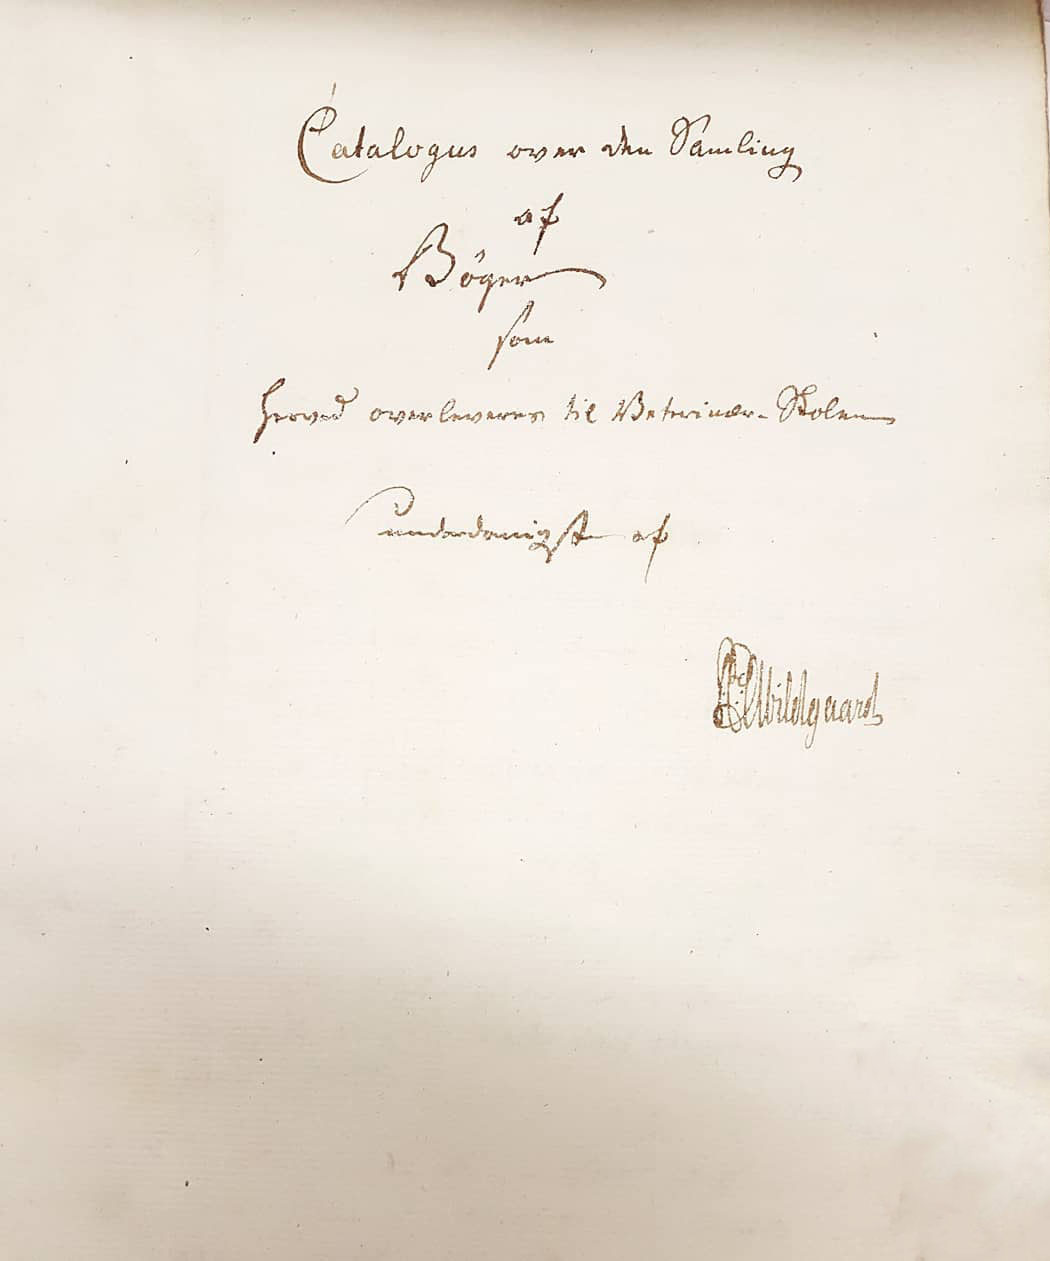 Catalogus over den Samling
af
Böger
som
herved overleveres til Veterinær-Skolen
underdanigst af
PCAbildgaard